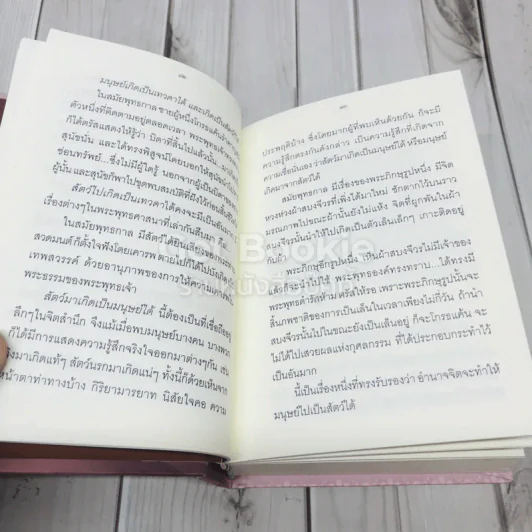 มนุษย์เกิดเป็นเทวดาได้ และเกิดเป็นสัตว์
ในสมัยพุทธกาล ชายผู้หนึ่งโกรธแค้นว่า
ตัวหนึ่งที่ติดตามอยู่ตลอดเวลา พระพุทธเจ้าทรง
ก็ได้ตรัสแสดงให้รู้ว่า บิดาที่สิ้นไปแล้วนั้น
สุนัขนั่น และได้ทรงพิสูจน์โดยบอกให้สุนัขนำไป
ซ่อนทรัพย์...ซึ่งไม่มีผู้ใดรู้ นอกจากผู้เป็นบิดา
ผู้นั้น และสุนัขก็พาไปขุดพบสมบัติที่ฝังไว้ก่อนสิ้น
สัตว์ไปเกิดเป็นเทวดาได้คงจะมีเป็นอันมาก
เรื่องต่างๆ ในพระพุทธศาสนาที่เล่ากันสืบมา ก็
ในสมัยพุทธกาล มีสัตว์ได้ยินเสียงพระ
สวดมนต์ ก็ตั้งใจฟังโดยเคารพ ตายไปก็ได้ไปบังเกิด
เทพสวรรค์ ด้วยอานุภาพของการให้ความเคารพใน
พระธรรมของพระพุทธเจ้า
สัตว์มาเกิดเป็นมนุษย์ได้ นี้ต้องเป็นที่เชื่อถืออยู่
ลึกๆ ในจิตสำนึก จึงแม้เมื่อพบมนุษย์บางคน บางพวก
ก็ได้มีการแสดงความรู้สึกจริงใจออกมาต่างๆ กัน เช่น
มาเกิดแท้ๆ สัตว์นรกมาเกิดแน่ๆ ทั้งนี้ก็ด้วยเห็นจาก
หน้าตาท่าทางบ้าง กิริยามารยาท นิสัยใจคอ ความ
ประพฤติบ้าง ซึ่งโดยมากผู้ที่พบเห็นด้วยกัน ก็จะมี
ความรู้สึกตรงกันดังกล่าว เป็นความรู้สึกที่เกิดจาก
ความเชื่อนั่นเองว่าสัตว์มาเกิดเป็นมนุษย์ได้ หรือมนุษย์
เกิดมาจากสัตว์ได้
สมัยพุทธกาล มีเรื่องของพระภิกษุรูปหนึ่ง มีจิต
หวงห่วงผ้าสบงจีวรที่เพิ่งได้มาใหม่ ซักตากไว้บนราว
มรณภาพไปขณะผ้านั้นยังไม่แห้ง จิตที่ผูกพันในผ้า
สบงจีวรนั้นนำให้ไปเกิดเป็นตัวเล็นเล็กๆ เกาะติดอยู่
พระภิกษุอีกรูปหนึ่ง เห็นผ้าสบงจีวรไม่มีเจ้าของ
ได้ พระพุทธองค์ทรงทราบ...ได้ทรงมี
พระพุทธดำรัสห้าม ตรัสให้รอ เพราะพระภิกษุรูปนั้นจะ
สิ้นภพชาติของการเป็นเล็นในเวลาเพียงไม่กี่วัน ถ้านำ
สบงจีวรนั้นไปในขณะยังเป็นเล็นอยู่ ก็จะโกรธแค้น จะ
ไม่ได้ไปเสวยผลแห่งกุศลกรรม ที่ได้ประกอบกระทำไว้
เป็นอันมาก
นี้เป็นเรื่องหนึ่งที่ทรงรับรองว่า อำนาจจิตจะทำให้
มนุษย์ไปเป็นสัตว์ได้
Bookie